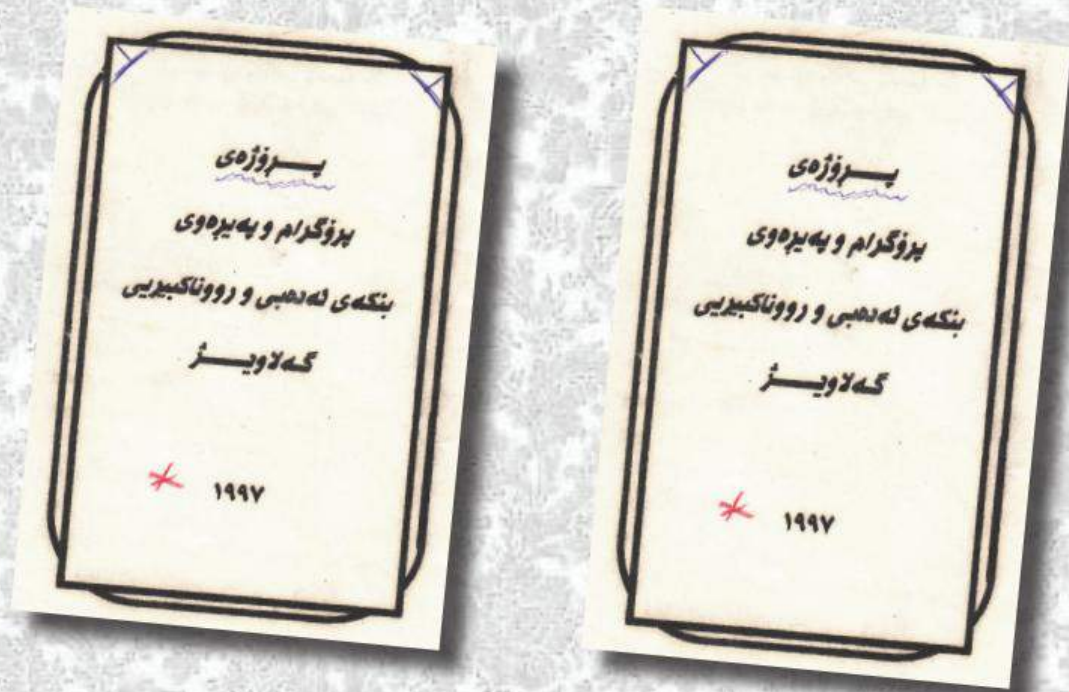 پـــرۆژەی
پرۆگرام و پەیڕەوی
بنکەی ئەدەبی و رووناکبیریی
گـەلاوێـــژ
١٩٩٧
پـــرۆژەی
پرۆگرام و پەیڕەوی
بنکەی ئەدەبی و رووناکبیریی
گـەلاوێـــژ
١٩٩٧